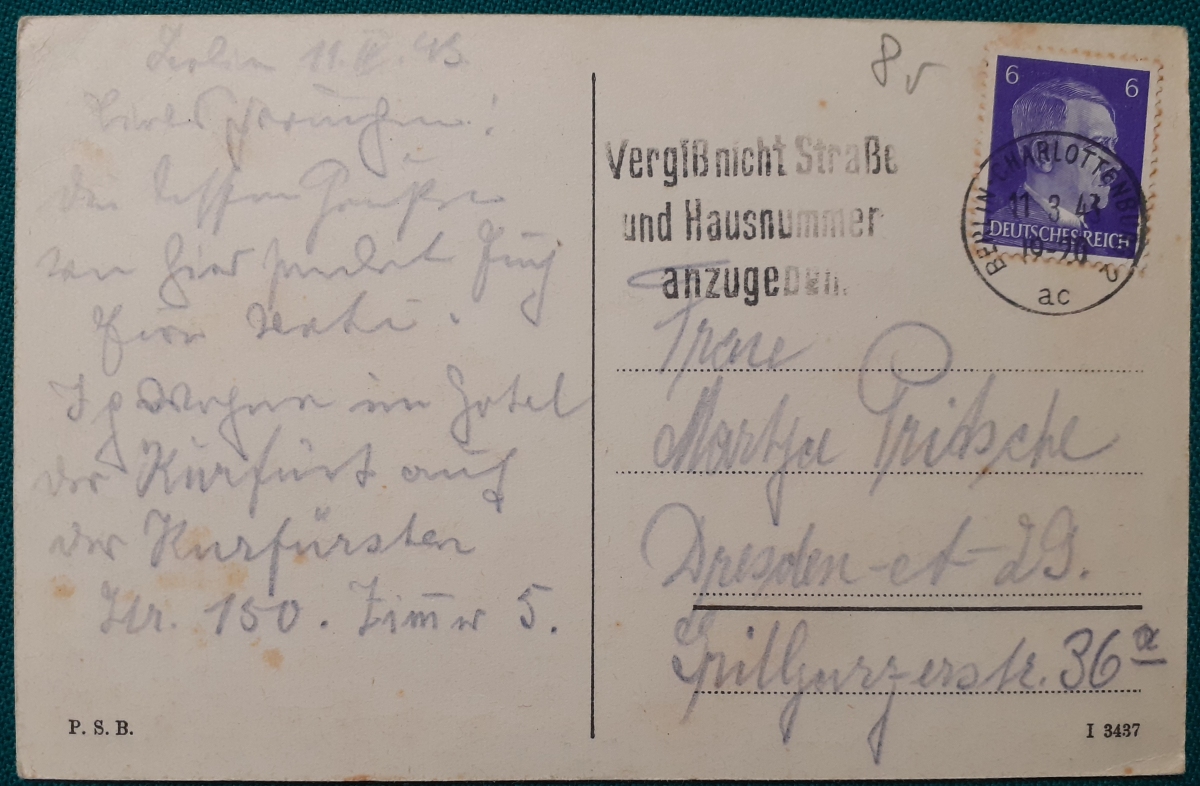 Berlin 11.III.43.
Liebes Frauchen!
Die besten Grüße
von hier sendet Euch
Euer
Ich wohne im Hotel
der Kurfürst auf
der Kurfürsten
Str. 150. Zimmer 5.
P. S. B.
8
Vergiß nicht Straße
und Hausnummer
anzugeben.
6 6
DEUTSCHES REICH
BERLIN-CHARLOTTENBURG 2
11 3 43
19-20
ac
Frau
Martha Fritsche
Dresden-A-29.
36a
I 3437